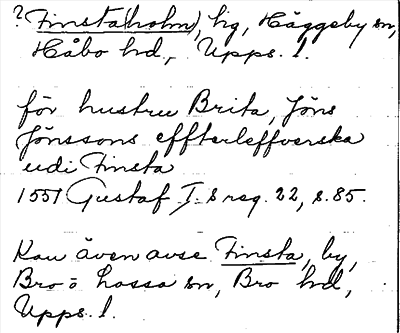 ? Finsta(holm), lg, Häggeby sn,
Håbo hd, Upps. l.
för hustru Brita, Jöns
Jönssons effterleffverska
udi Finsta
1551 Gustaf I:s reg. 22, s. 85.
Kan även avse Finsta, by,
Bro o Lossa sn, Bro hd,
Upps. l.